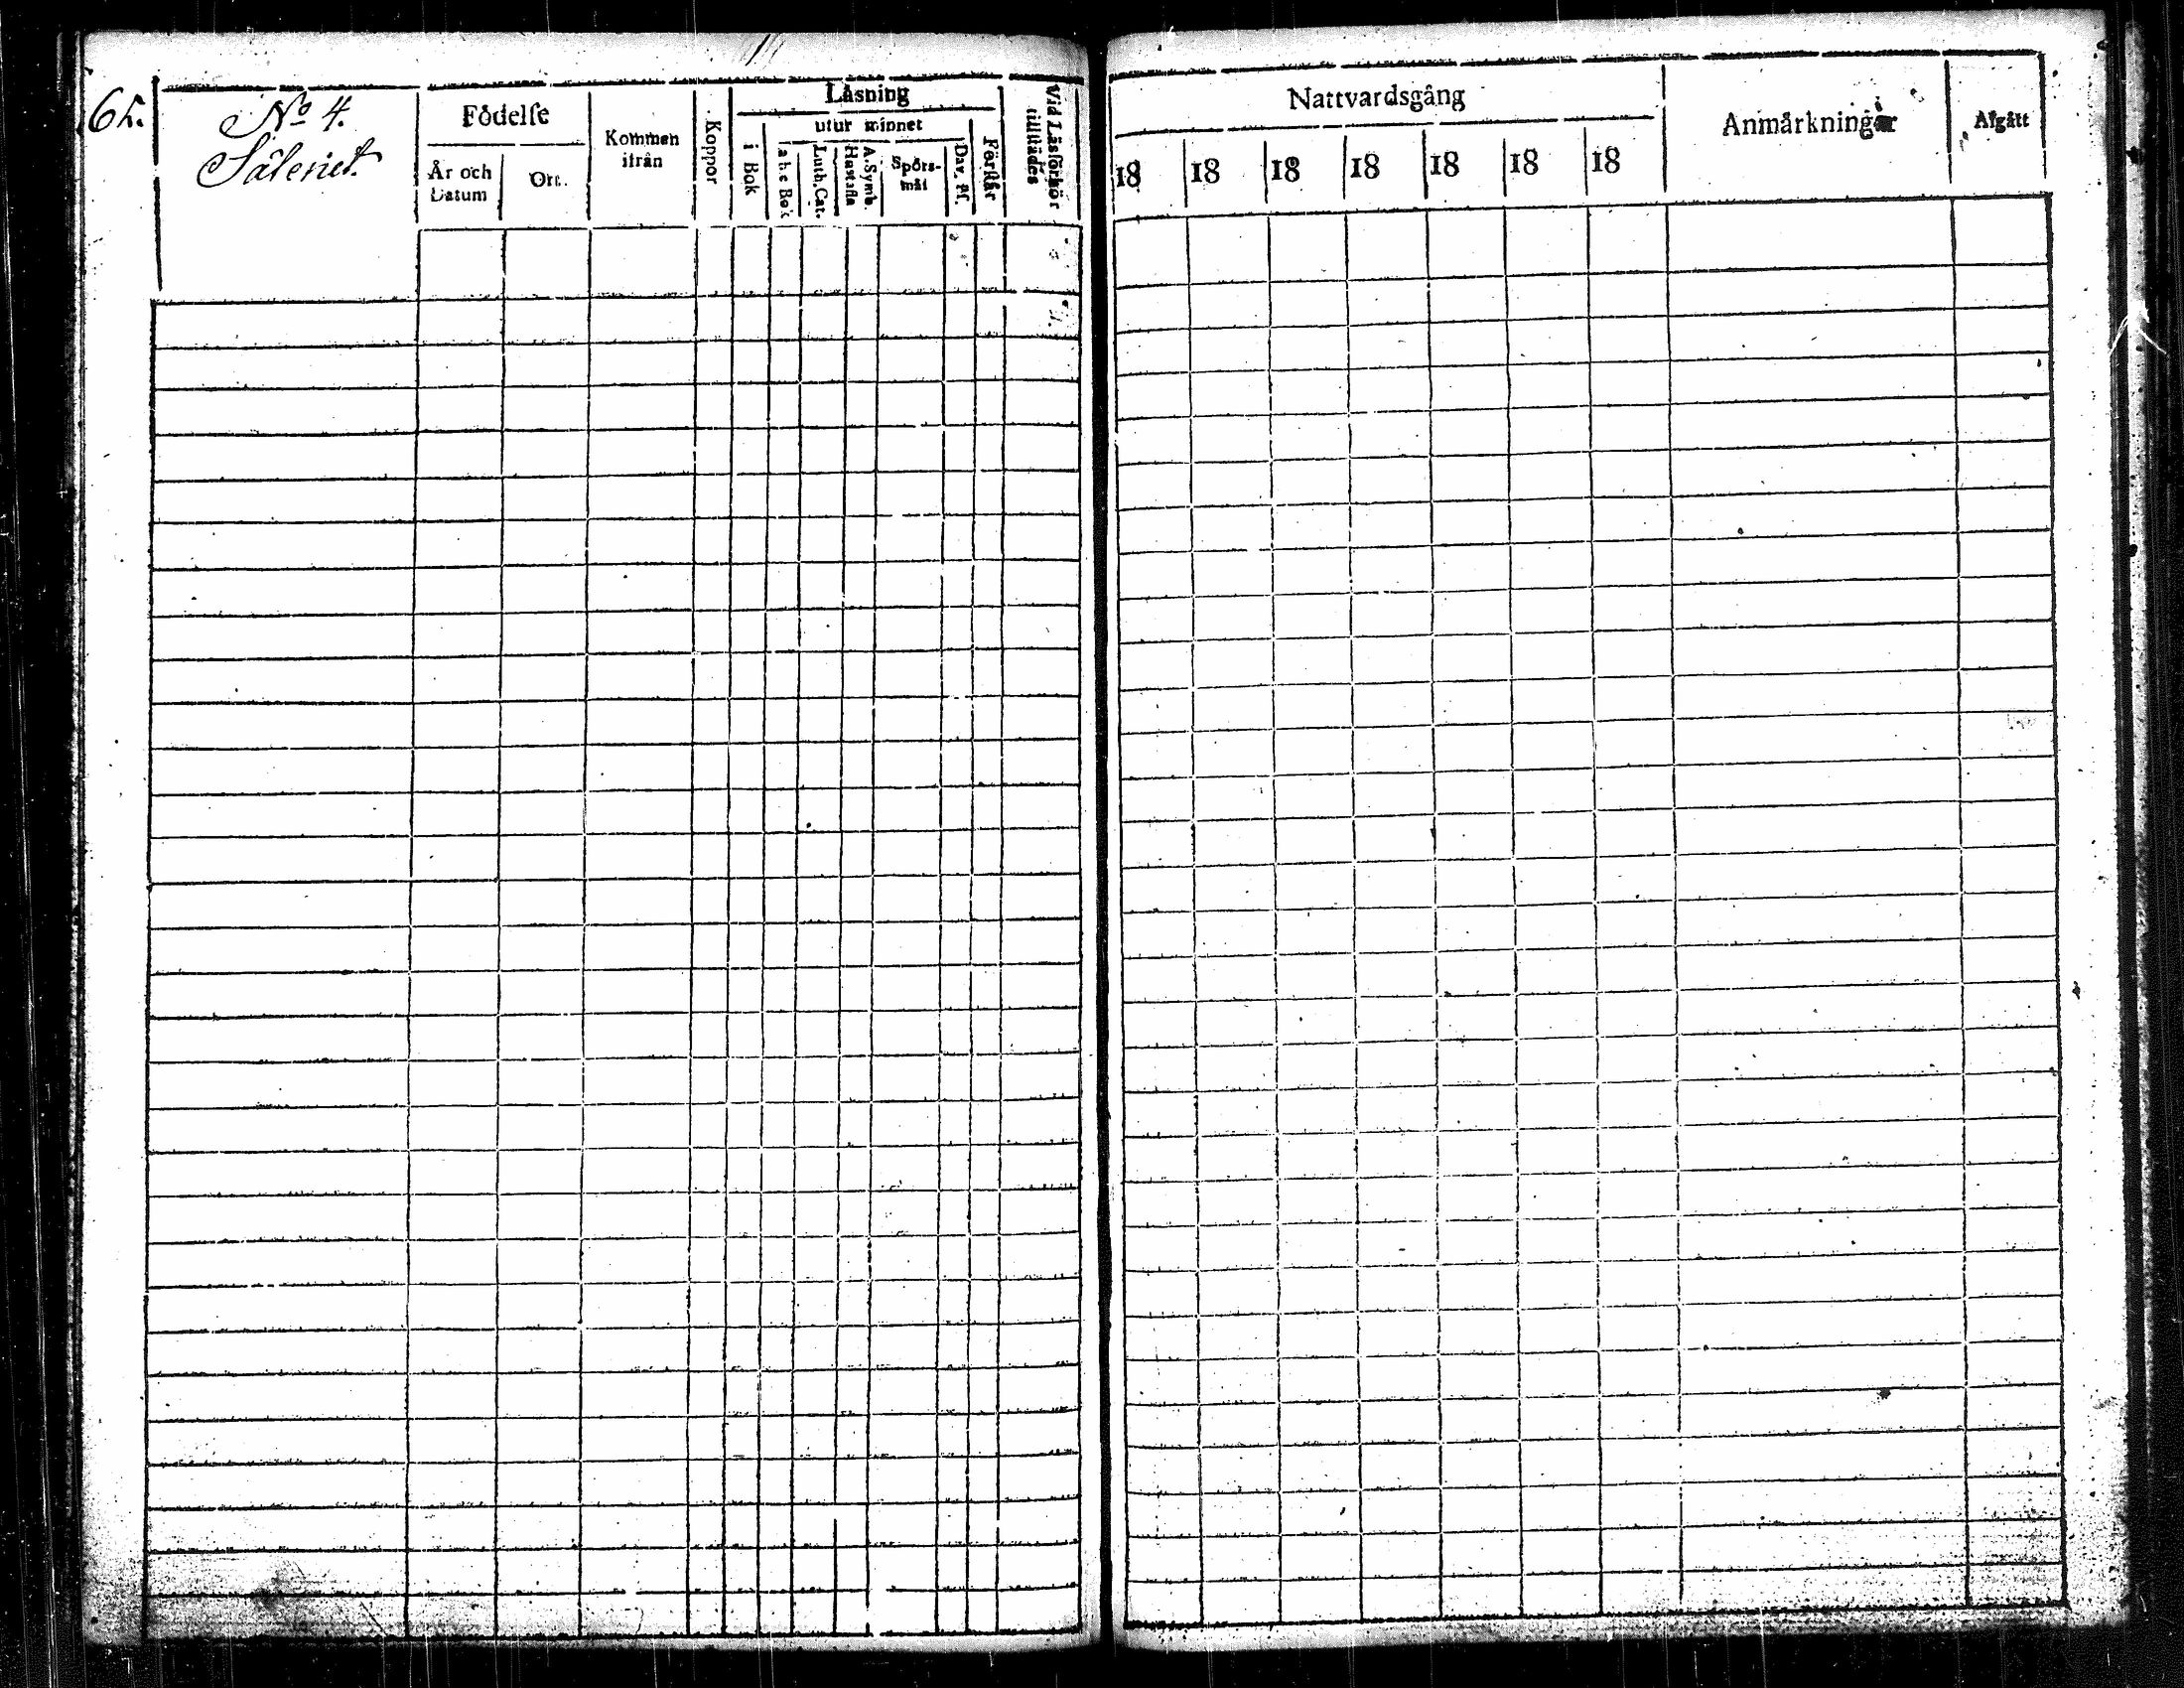 62.
No 4.
Säteriet.
Födelse
År och Datum
Ort.
Kommen ifrån
Koppor
Läsning
i Bok
utur minnet
a b c Bok
Luth. Cat.
Hustafla
A. Symb.
Spörsmål
Dav. Ps.
Förstår
Vid Läsförhör tillstädes
Nattvardsgång
18 18 18 18 18 18 18
Anmärkningar
Afgått